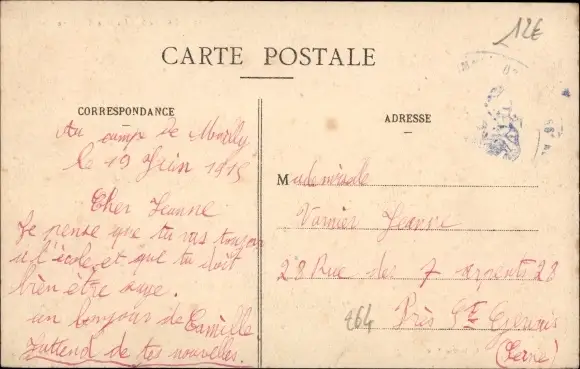 12€
CARTE POSTALE
CORRESPONDANCE
Au camp de Mailly
le 19 Juin 1915
Cher Jeanne
Je pense que tu vas toujour
a l'école et que tu doit
bien être sage.
un bonjour de Camille
J'attend de tes nouvelles.
ADRESSE
Mademoiselle
Varnier Jeanne
28 Rue des 7 arpents 28
Près St Gervais
(Seine)
464